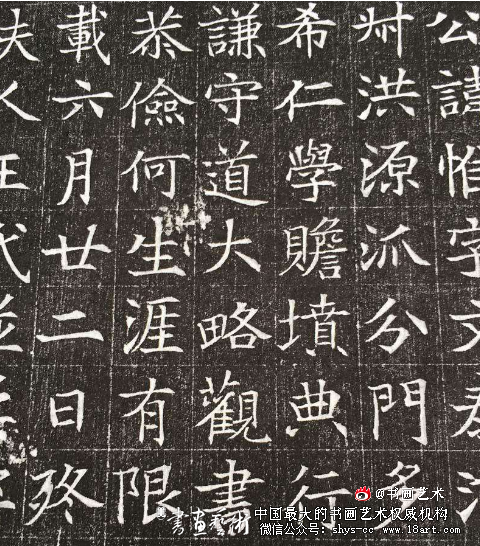 公諱惟字文君
洪源派分門名
希仁學贍墳典行
謙守道大略觀書
恭儉何生涯有限
載六月廿二日終
夫人王代並
@书画艺术
書畫藝術
中国最大的书画艺术权威机构
微信公众号：shys-cc www.18art.com